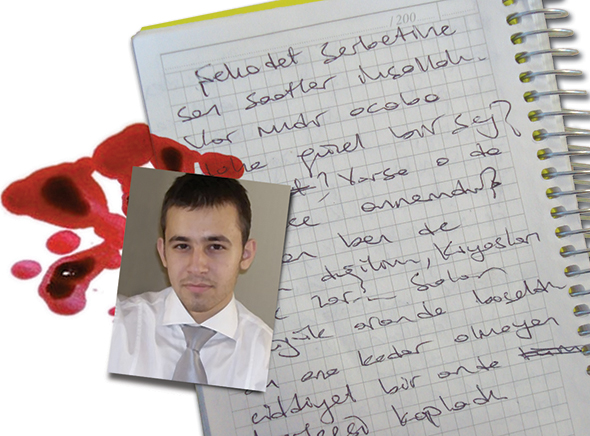 /200
Şehadet Şerbetine
son saatler inşallah.
Var mıdır acaba
güzel bir şey?
? Varsa o da
annemdir?
ben de
değilim, Kıyasları
zor.... Salon
oranda boşaldı
ana kadar olmayan
ciddiyet bir anda
kapladı